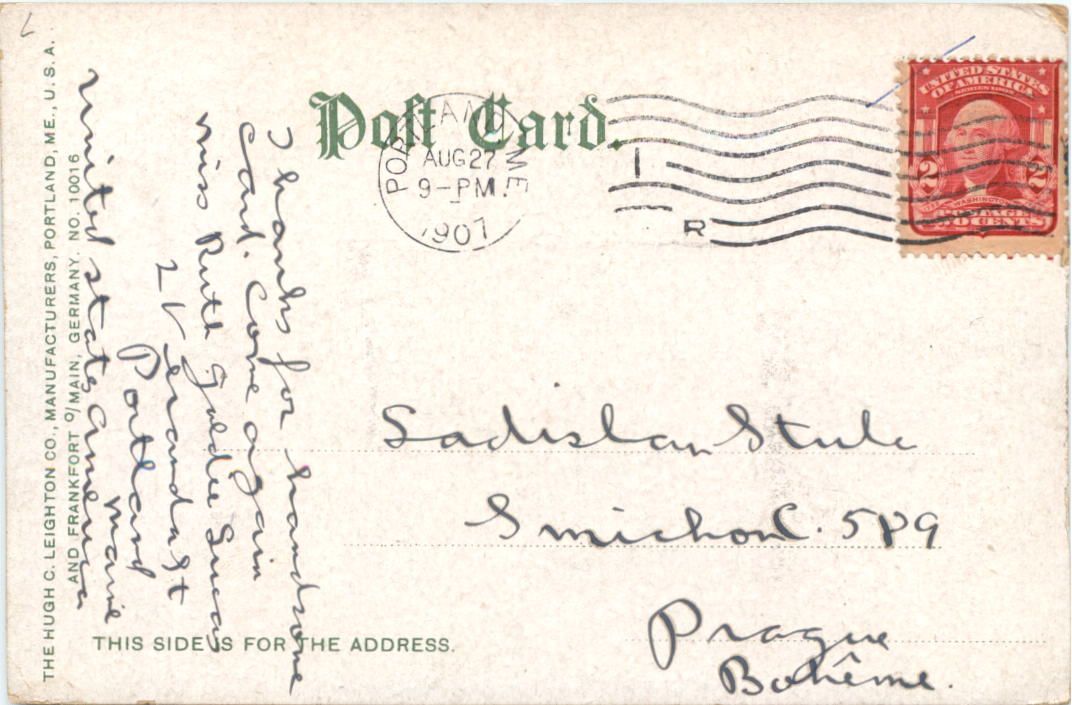 Post Card.
PORTLAND ME
AUG 27
9-PM.
1907
1
R
UNITED STATES
OF AMERICA
SERIES 1902
2 2
WASHINGTON
POSTAGE
TWO CENTS
THE HUGH C. LEIGHTON CO., MANUFACTURERS, PORTLAND, ME., U. S. A.
AND FRANKFORT O/MAIN, GERMANY. NO. 10016
Thanks for handsome
card. Come again
miss Ruth Goldie
2 St
Portland
Maine
United states America
Sadislav Stule
Smichov. 589
Prague
Bohême.
THIS SIDE IS FOR THE ADDRESS.